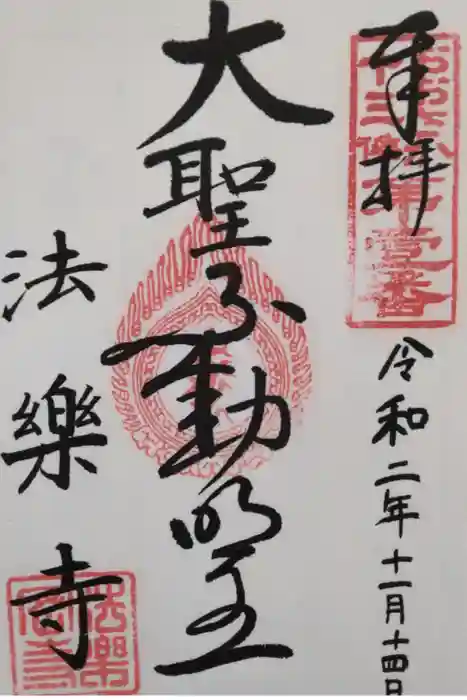 奉拝
第壹番
令和二年十一月十四日
大聖不動明王
法樂寺